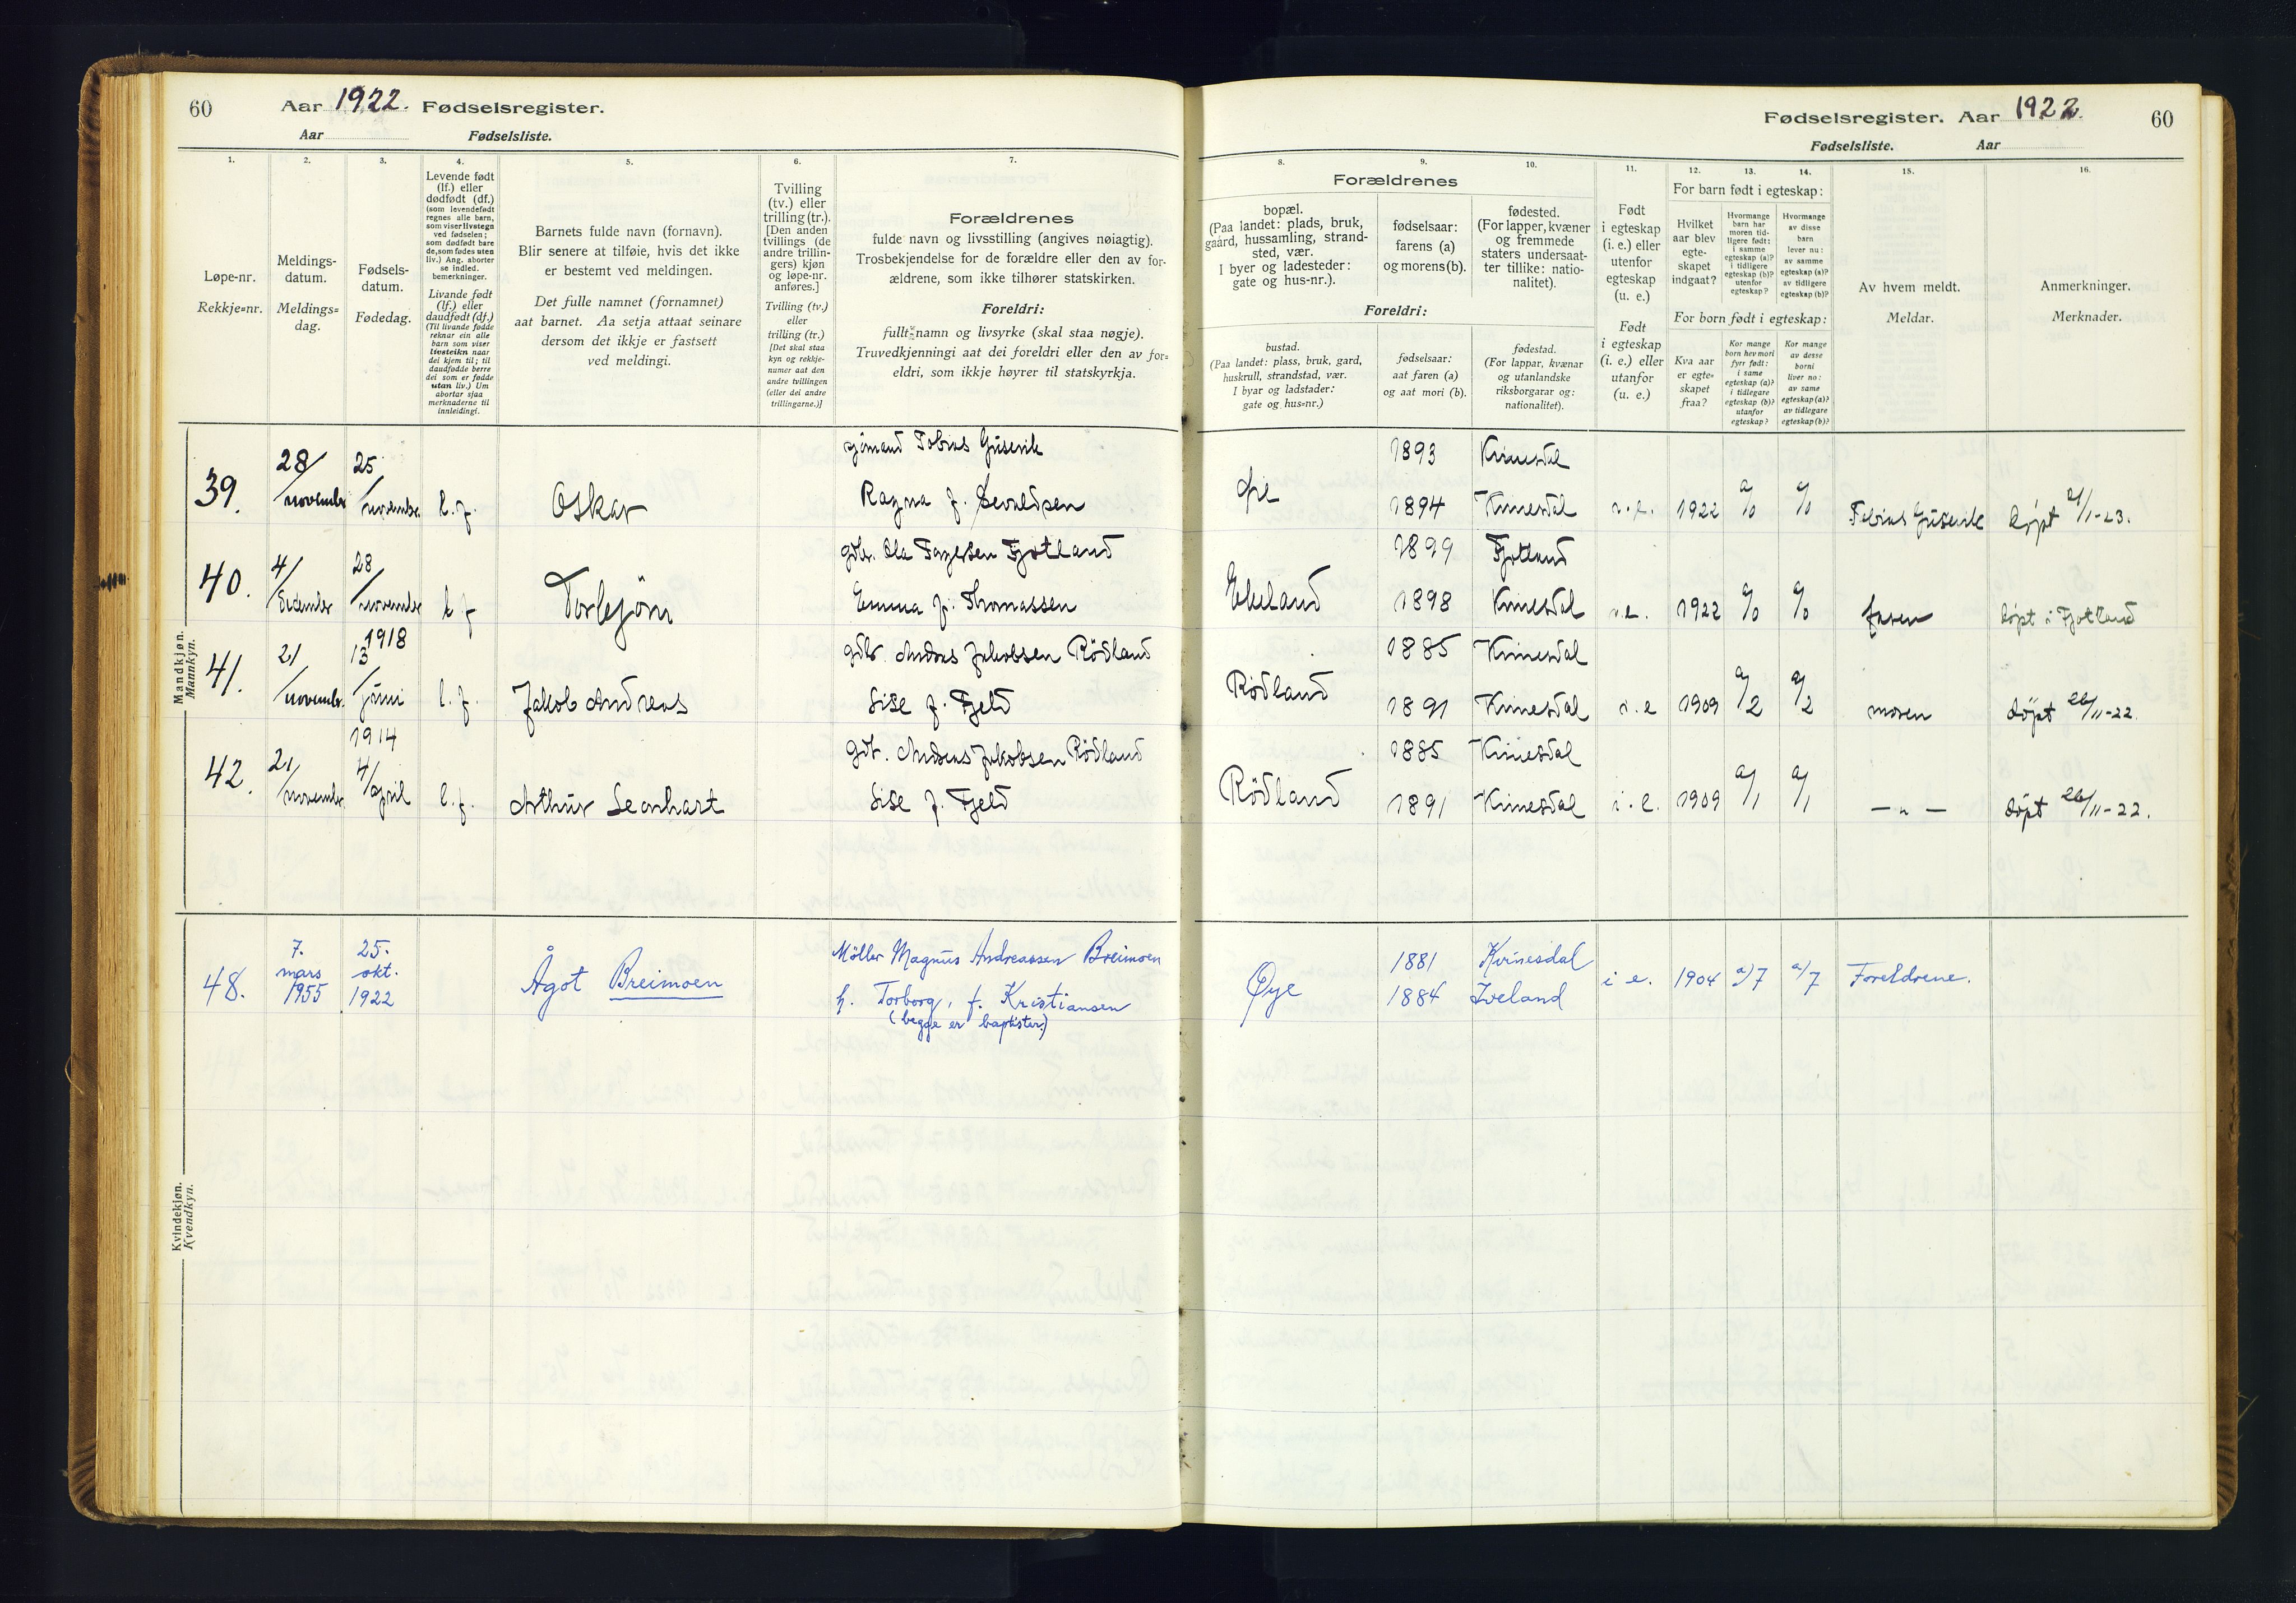 60 Aar 1922. Fødselsregister.
Aar Fødselsliste.
1. 2. 3. 4. 5. 6. 7.
Løpe-nr.
Rekkje=nr.
Meldings-
datum.
Meldings=
dag.
Fødsels-
datum.
Fødedag.
Levende født
(lf.) eller
dødfødt (df.)
(som levendefødt
regnes alle barn,
som viser livstegn
ved fødselen;
som dødfødt bare
de, som fødes uten
liv.) Ang. aborter
se indled.
bemerkninger.
Livande født
(lf.) eller
daudfødt (df.)
(Til livande fødde
reknar ein alle
barn som viser
livsteikn naar
dei kjem til; til
daudfødde berre
dei som er fødde
utan liv.) Um
abortar sjaa
merknaderne til
innleidingi.
Barnets fulde navn (fornavn).
Blir senere at tilføie, hvis det ikke
er bestemt ved meldingen.
Det fulle namnet (fornamnet)
aat barnet. Aa setja attaat seinare
dersom det ikkje er fastsett
ved meldingi.
Tvilling
(tv.) eller
trilling (tr.).
[Den anden
tvillings (de
andre trillin-
gers) kjøn
og løpe-nr.
anføres.]
Tvilling (tv.)
eller
trilling (tr.)
[Det skal staa
kyn og rekkje-
numer aat den
andre tvillingen
(eller dei andre
trillingarne.)]
Forældrenes
fulde navn og livsstilling (angives nøiagtig).
Trosbekjendelse for de forældre eller den av for-
ældrene, som ikke tilhører statskirken.
Foreldri:
fullt namn og livsyrke (skal staa nøgje).
Truvedkjenningi aat dei foreldri eller den av for=
eldri, som ikkje høyrer til statskyrkja.
Mandkjøn.
Mannkyn.
39. 28/november 25/november l.f. Oskar
Tobias Gusevik
Ragna f. Sevaldsen
40. 4/december 28/november l f Torbjørn
gdbr. Ola Targesen Fjotland
Emma f. Thomassen
41. 21/november 1918 13/juni l.f. Jakob Andreas
gdbr. Andreas Jakobsen Rödland
Lise f. Fjeld
42. 21/november 1914 4/april l.f. Arthur Leonhart
gdb. Andreas Jakobsen Rödland
Lise f. Fjeld
Kvindekjøn.
Kvendkyn.
48. 7. mars 1955 25. okt. 1922 Ågot Breimoen
Møller Magnus Andreassen Breimoen
h. Torborg, f. Kristiansen
(begge er baptister)
Fødselsregister. Aar 1922. 60
Fødselsliste. Aar
8. 9. 10. 11. 12. 13. 14. 15. 16.
Forældrenes
bopæl.
(Paa landet: plads, bruk,
gaard, hussamling, strand-
sted, vær.
I byer og ladesteder:
gate og hus-nr.).
fødselsaar:
farens (a)
og morens (b).
fødested.
(For lapper, kvæner
og fremmede
staters undersaat-
ter tillike: natio-
nalitet).
Foreldri:
bustad.
(Paa landet: plass, bruk, gard,
huskrull, strandstad, vær.
I byar og ladstader:
gate og hus=nr.)
fødselsaar:
aat faren (a)
og aat mori (b).
fødestad.
(For lappar, kvænar
og utanlandske
riksborgarar og:
nationalitet).
Født
i egteskap
(i. e.) eller
utenfor
egteskap
(u. e.)
Født
i egteskap
(i. e.) eller
utanfor
(u. e.)
For barn født i egteskap:
Hvilket
aar blev
egte-
skapet
indgaat?
Hvormange
barn har
moren tid-
ligere født:
i samme
egteskap (a)?
i tidligere
egteskap (b)?
utenfor
egteskap?
Hvormange
av disse
barn
lever nu:
av samme
egteskap (a)?
av tidligere
egteskap (b)?
For born født i egteskap:
Kva aar
er egte=
skapet
fraa?
Kor mange
born hev mori
fyrr født:
i same
egteskap (a)?
i tidlegare
egteskap (b)?
utanfor
egteskap?
Kor mange
av desse
borni
liver no:
av same
egteskap (a)?
av tidlegare
egteskap (b)?
Av hvem meldt.
Meldar.
Anmerkninger.
Merknader.
1893 Kvinesdal
Øie 1894 Kvinesdal i.e. 1922 a/0 a/0 Tobias Gusevik døpt
1899 Fjotland
Ekeland 1898 Kvinesdal i.e. 1922 a/0 a/0 faren døpt i Fjotland
1885 Kvinesdal
Rödland 1891 Kvinesdal i.e 1909 a/2 a/2 moren döpt 26/11-22.
1885 Kvinesdal
Rödland 1891 Kvinesdal i.e. 1909 a/1 a/1 — " — döpt 26/11-22.
1881 Kvinesdal
Øye 1884 Iveland i e. 1904 a/7 a/7 Foreldrene.